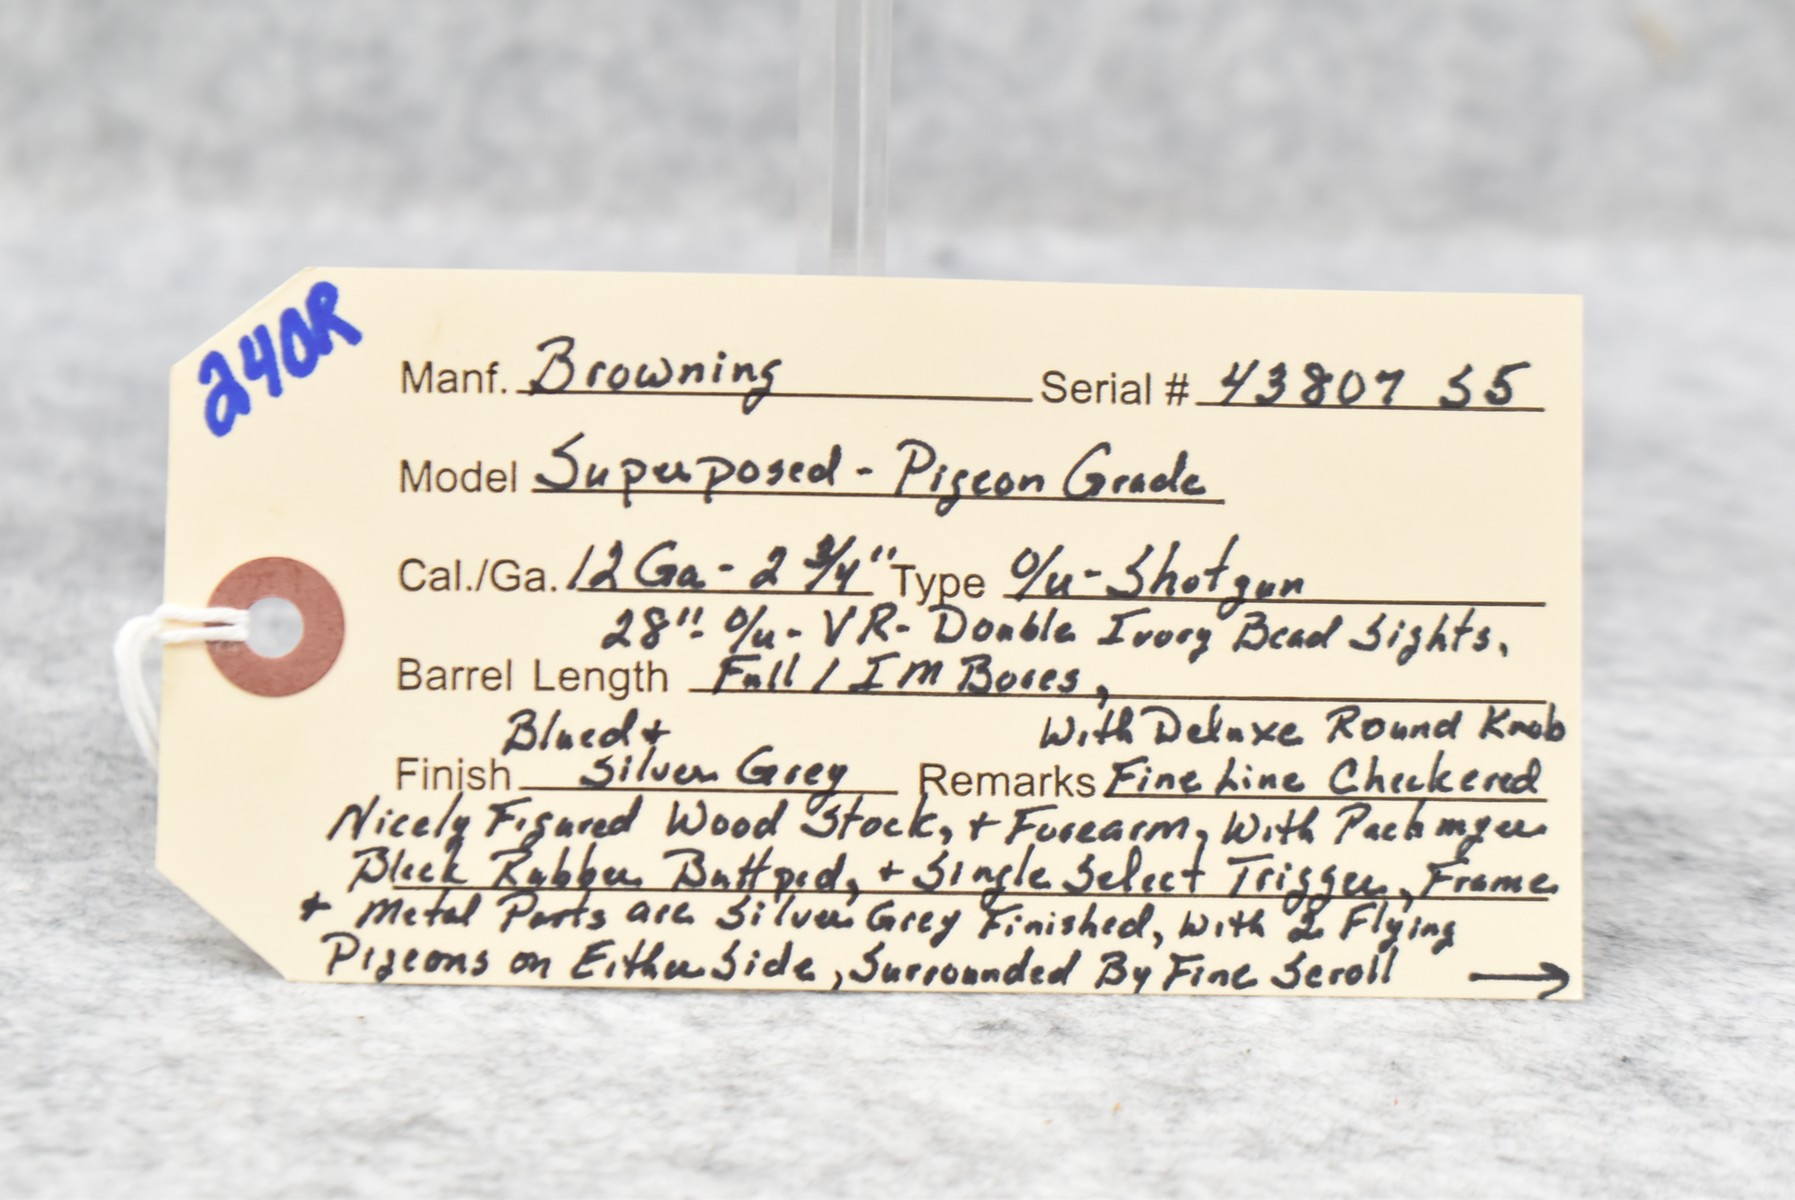 240R
Manf. Browning Serial # 43807 S5
Model Superposed - Pigeon Grade
Cal./Ga. 12 Ga - 2 3/4" Type O/u - Shotgun
28" - O/u - VR - Double Ivory Bead Sights,
Barrel Length Full / IM Bores,
Blued + With Deluxe Round Knob
Finish Silver Grey Remarks Fine Line Checkered
Nicely Figured Wood Stock, + Forearm, With Pachmyer
Black Rubber Buttpad, + Single Select Trigger, Frame
+ Metal Parts are Silver Grey Finished, with 2 Flying
Pigeons on Either Side, Surrounded By Fine Scroll →